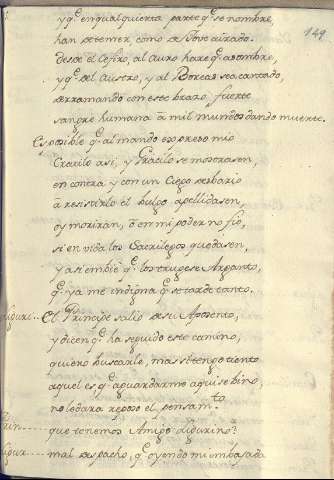 149
yq̃ en qualquierta parte q̃ se nombre,
han de temer como de Jove airado.
desde el Cefiro, al Auro hare q̃ asombre,
y q̃ del Austro, y al Boreas sea cantado,
derramando con este brazo fuerte
sangre humana a mil mundos dando muerte.
Es posible q̃ al mando expreso mio
Cratilo asi, y se mostrasen,
en contra y con un Ciego desbario
a resistirlo el bulgo apellidasen,
oy moriran, o en mi poder no fio,
si en vida los Sacrilegos quedasen,
y asi embie q̃ los truxese Arganto,
q̃ ya me indigna q̃ se tarde tanto.
El Principe salio de su Aposento,
y dicen q̃ ha seguido este camino,
quiero buscarle, mas si tengo tiento
aquel es q̃ aguardarme aqui se bino,
no le dara reposo el pensamto
Prin que tenemos Amigo
mal despacho, q̃ oyendo mi embaxada